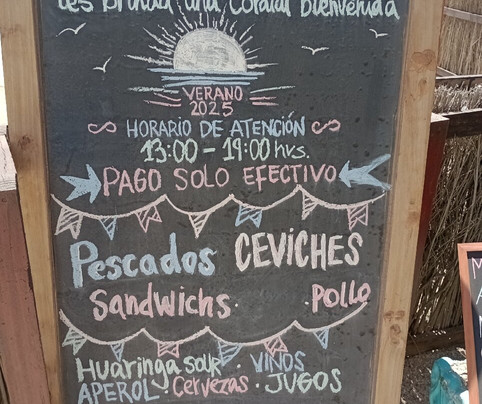 Les Brinda una Cordial bienvenida
VERANO
2025
HORARIO DE ATENCIÓN
13:00 - 19:00 hrs.
PAGO SOLO EFECTIVO
Pescados CEVICHES
Sandwichs · · POLLO
Huaringa SOUR · VINOS
APEROL · Cervezas · JUGOS